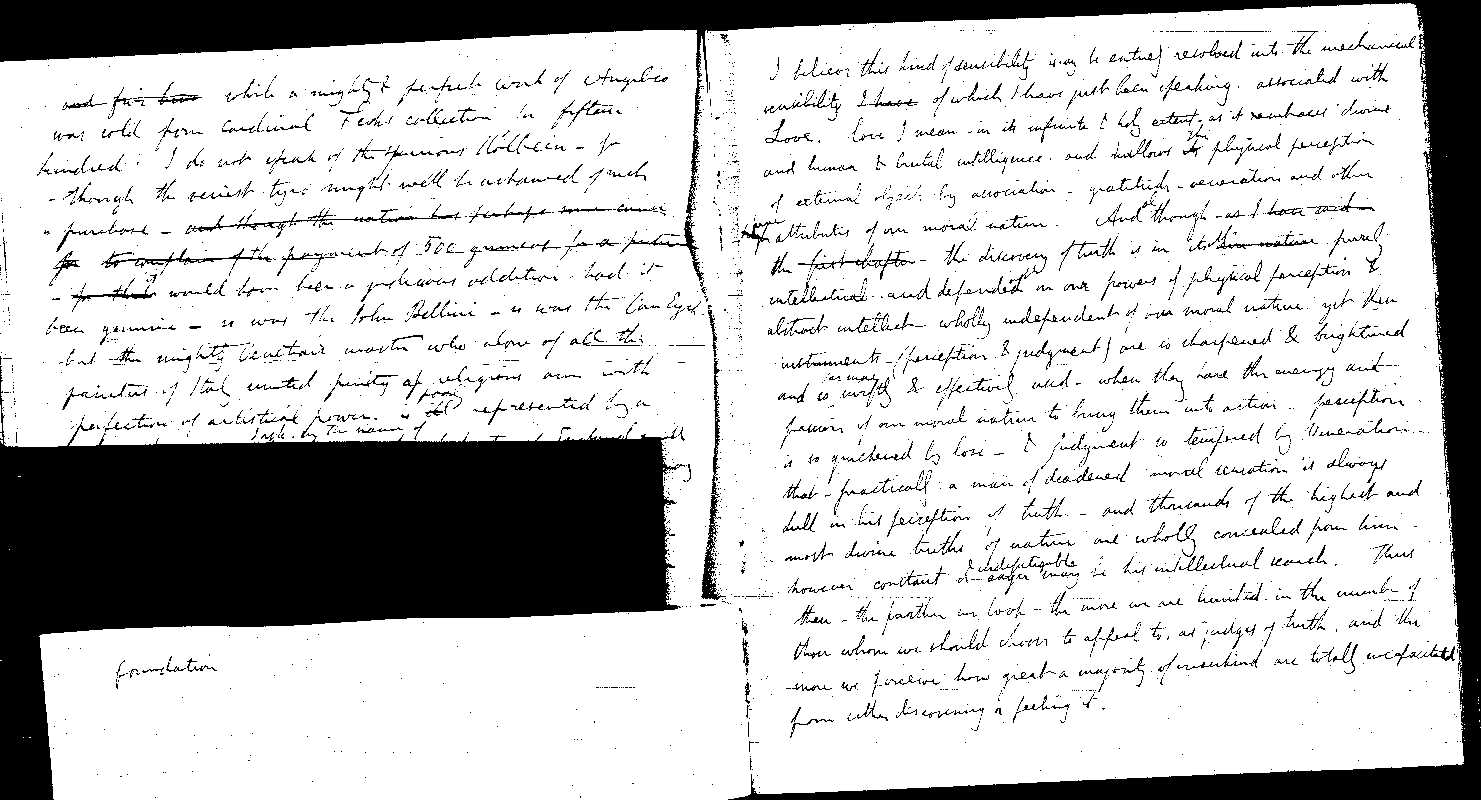 and fair time while a mighty & perfect work of Angelico
was sold from Cardinal Fesch's collection for fifteen
hundred: I do not speak of the spurious Holbein - for
- though the veriest tyro might well be ashamed of such
a purchase - and though the nation has perhaps some cause
for to complain of the payment of 500 guineas for a picture
- for this would have been a judicious addition had it
been genuine - so was the John Bellini - so was the Van Eyck
but the mighty Venetian master who alone of all the
painters of Italy united purity of religious aim with
perfection of artistical power. is poorly represented by a
by the name of
I believe this kind of sensibility may be entirely resolved into the mechanical
sensibility I have of which I have just been speaking. associated with
Love. love I mean - in its infinite & holy extent, as it embraces divine
and human & brutal intelligence. and hallows the physical perception
of external objects by association - gratitude - veneration and other
pure attributes of our moral nature. And though - as I have said in
the first chapter - the discovery of truth is in itself nature purely
intellectual. and dependent on our powers of physical perception &
abstract intellect - wholly independent of our moral nature yet these
instruments - (perception & judgment) are so sharpened & brightened
and so swiftly & effectively used - when they have the energy and
passion of our moral nature to bring them into action - perception
is so quickened by love - & judgment so tempered by Veneration -
that - practically a man of deadened moral sensation is always
dull in his perception of truth - and thousands of the highest and
most divine truths of nature are wholly concealed from him -
however constant & indefatigable eager may be his intellectual search. Thus
then - the farther we look - the more we are limited in the number of
those whom we should choose to appeal to, as judges of truth, and the
more we perceive how great a majority of mankind are totally incapacitated
from either discovering or feeling it.
foundation